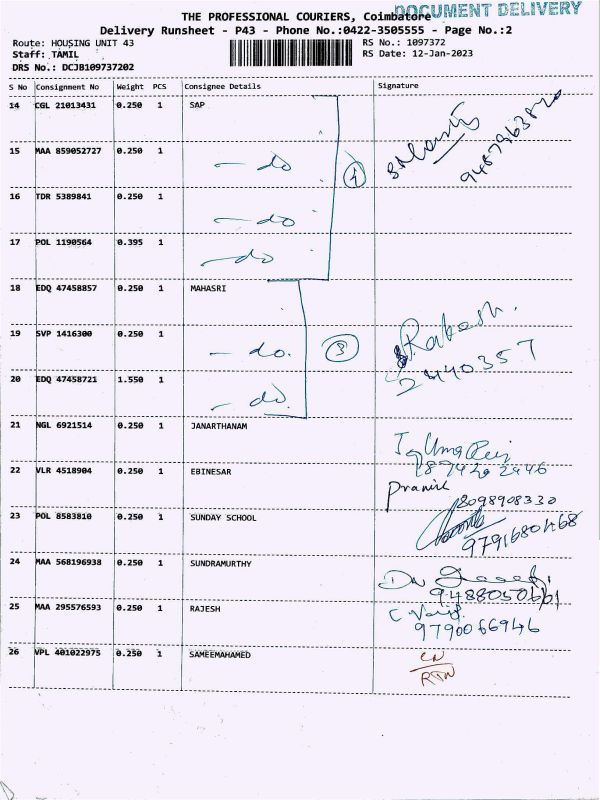 DOCUMENT DELIVERY
THE PROFESSIONAL COURIERS, Coimbatore
Delivery Runsheet - P43 - Phone No.:0422-3505555 - Page No.:2
Route: HOUSING UNIT 43 RS No.: 1097372
Staff: TAMIL RS Date: 12-Jan-2023
DRS No.: DCJB109737202
S No Consignment No Weight PCS Consignee Details Signature
14 CGL 21013431 0.250 1 SAP
9487963820
15 MAA 859052727 0.250 1 - do
4
16 TDR 5389841 0.250 1 - do
17 POL 1190564 0.395 1 - do
18 EDQ 47458857 0.250 1 MAHASRI
Rakesh.
19 SVP 1416300 0.250 1 - do.
3
2440357
20 EDQ 47458721 1.550 1 - do.
21 NGL 6921514 0.250 1 JANARTHANAM
22 VLR 4518904 0.250 1 EBINESAR
8098908330
23 POL 8583810 0.250 1 SUNDAY SCHOOL
9791680468
24 MAA 568196938 0.250 1 SUNDRAMURTHY
9488050661
25 MAA 295576593 0.250 1 RAJESH
9790066946
26 VPL 401022975 0.250 1 SAMEEMAHAMED
CN
RTN